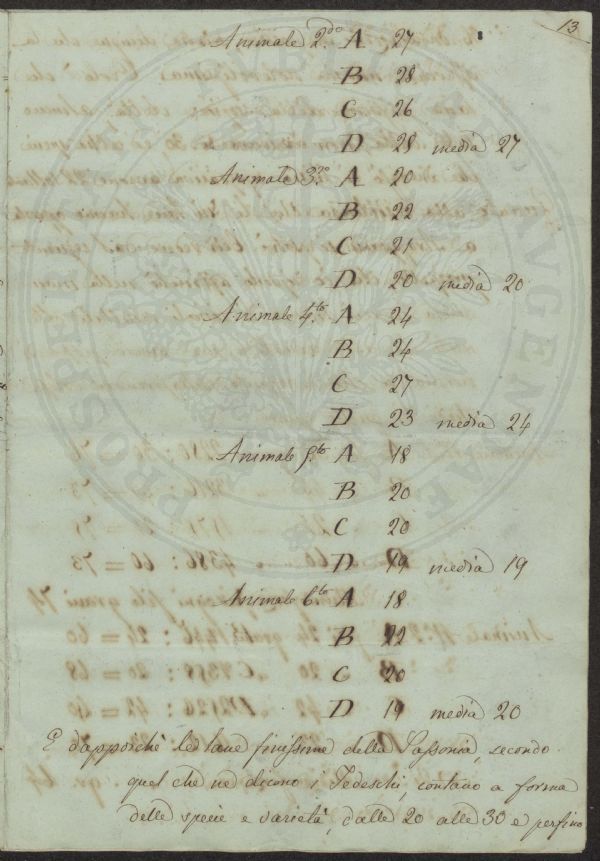 13
Animale 2.do A 27
B 28
C 26
D 28 media 27
Animale 3.zo A 20
B 22
C 21
D 20 media 20
Animale 4.to A 24
B 24
C 27
D 23 media 24
Animale 5.to A 18
B 20
C 20
D 19 media 19
Animale 6.to A 18
B 22
C 20
D 19 media 20
E dappoichè le lane finissime della Sassonia, secondo
quel che ne dicono i Tedeschi, contano a forma
delle specie e varietà, dalle 20 alle 30 e perfino